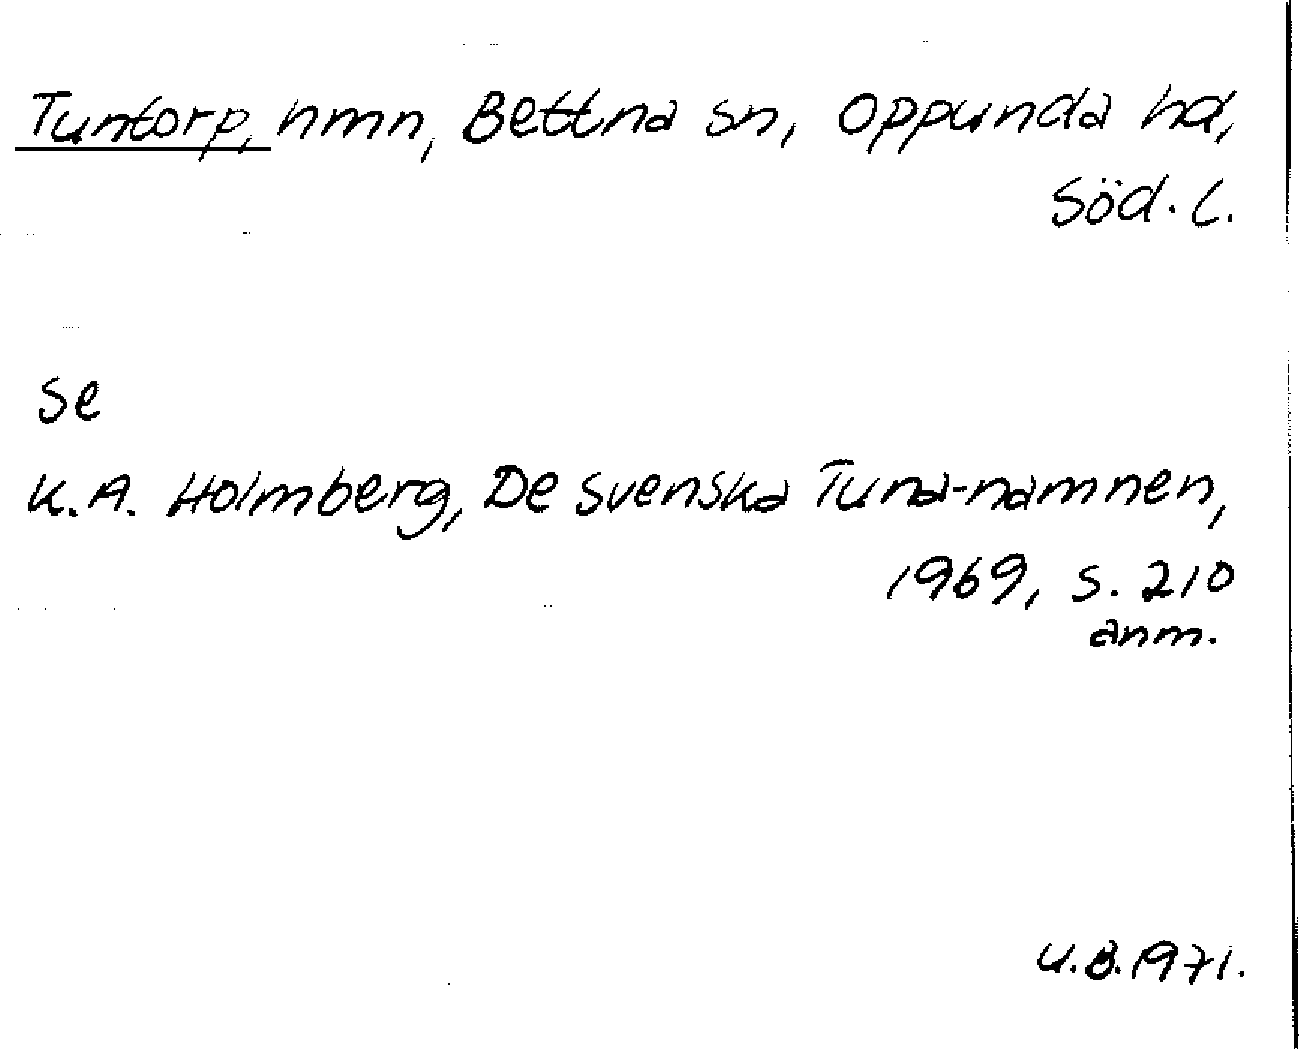 Tuntorp, hmn, Bettna sn, Oppunda hd,
Söd. l.
Se
K.A. Holmberg, De svenska Tuna-namnen,
1969, s. 210
anm.
U.B. 1971.